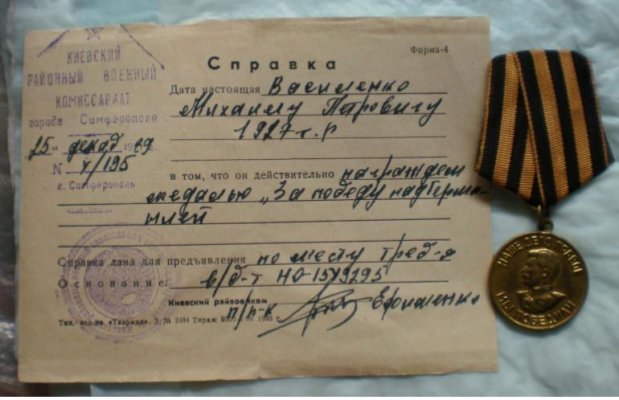 КИЕВСКИЙ
РАЙОННЫЙ ВОЕННЫЙ
КОМИССАРИАТ
города Симферополя
25 декаб 1989
N х/195
г. Симферополь
Справка
Форма-4
Дата настоящая Василенко
Михаилу Петровичу
1927 г.р
в том, что он действительно награжден
медалью „За победу над Герма
нией
Справка дана для предъявления по месту треб-я
Основание: в/б-т НО-1579295
Киевский райвоенком
п/п-к Ефименко
Тип. изд-ва «Таврида». З. № 2484 Тираж
НАШЕ ДЕЛО ПРАВОЕ
МЫ ПОБЕДИЛИ